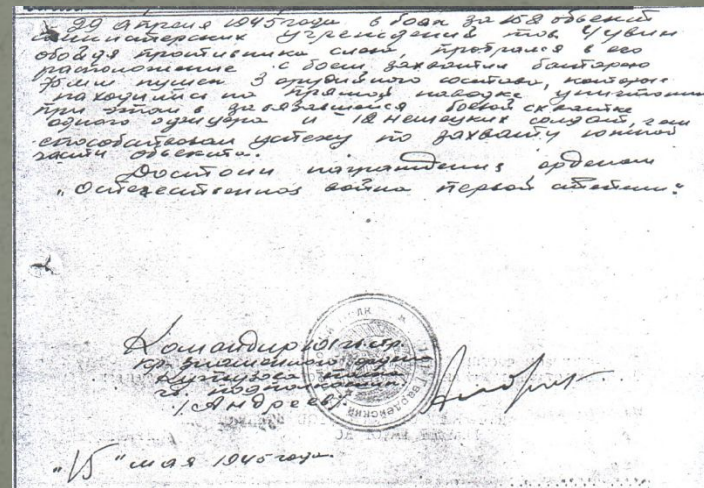 29 апреля 1945 года в боях за 158 объект
министерских учреждений тов Чувин
обойдя противника слева, пробрался в его
расположение с боем, захватил батарею
пушек 3 орудийного состава, которые
находились на прямой наводке, уничтожив
при этом в завязавшейся боевой схватке
одного офицера и 12 немецких солдат, чем
способствовал успеху по захвату южной
части объекта.
Достоин награждения орденом
"Отечественной война первой степени"
Командир 101 гв. стр.
Кр. знаменного ордена
Кутузова полка
гв. подполковник
(Андреев)
"15" мая 1945 года.